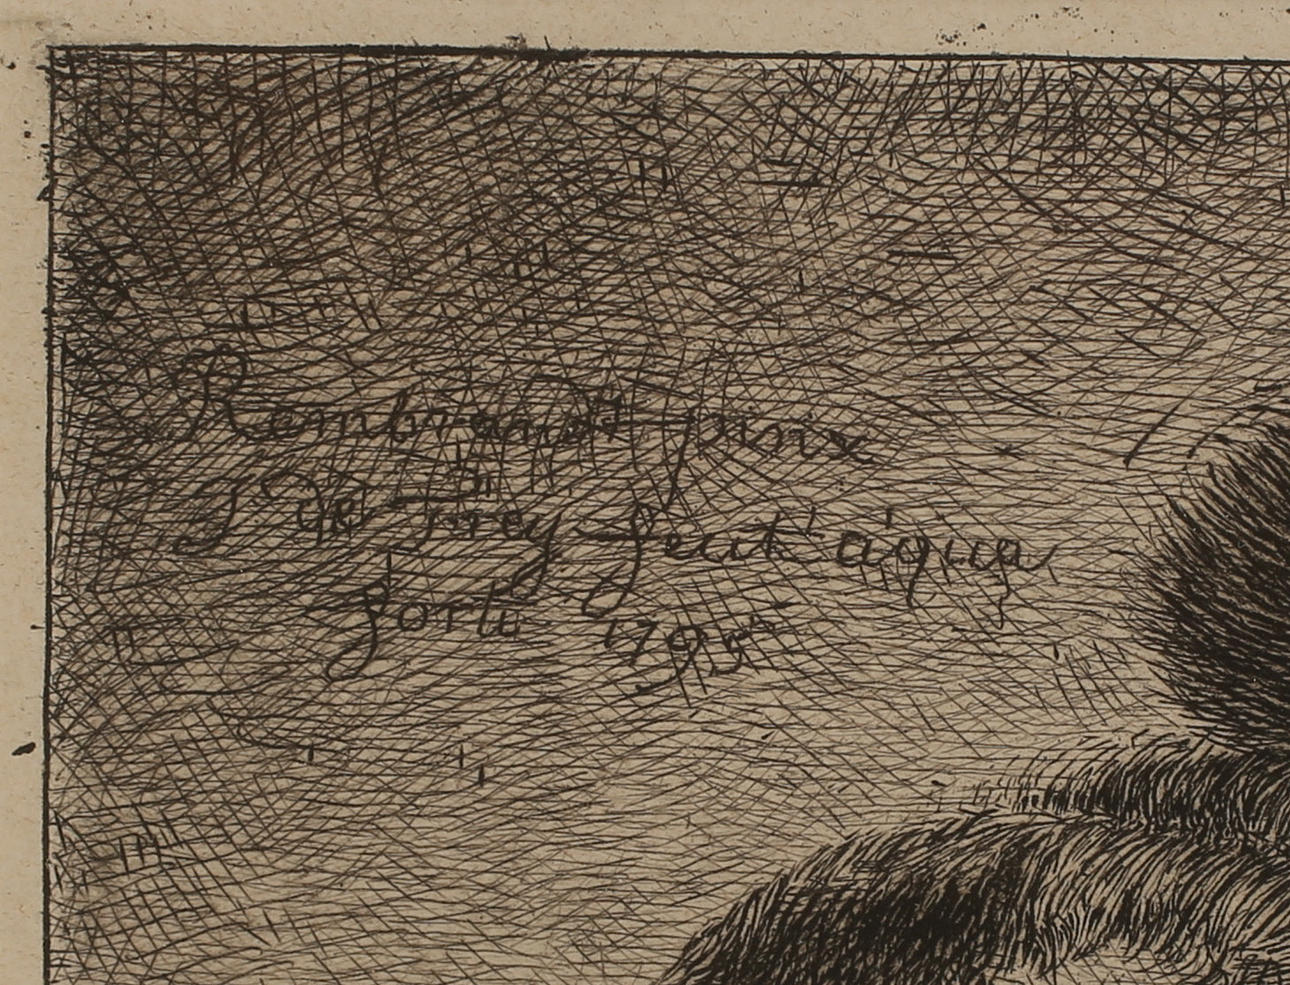 Rembrandt pinx
J de Frey fecit aqua
forti 1795